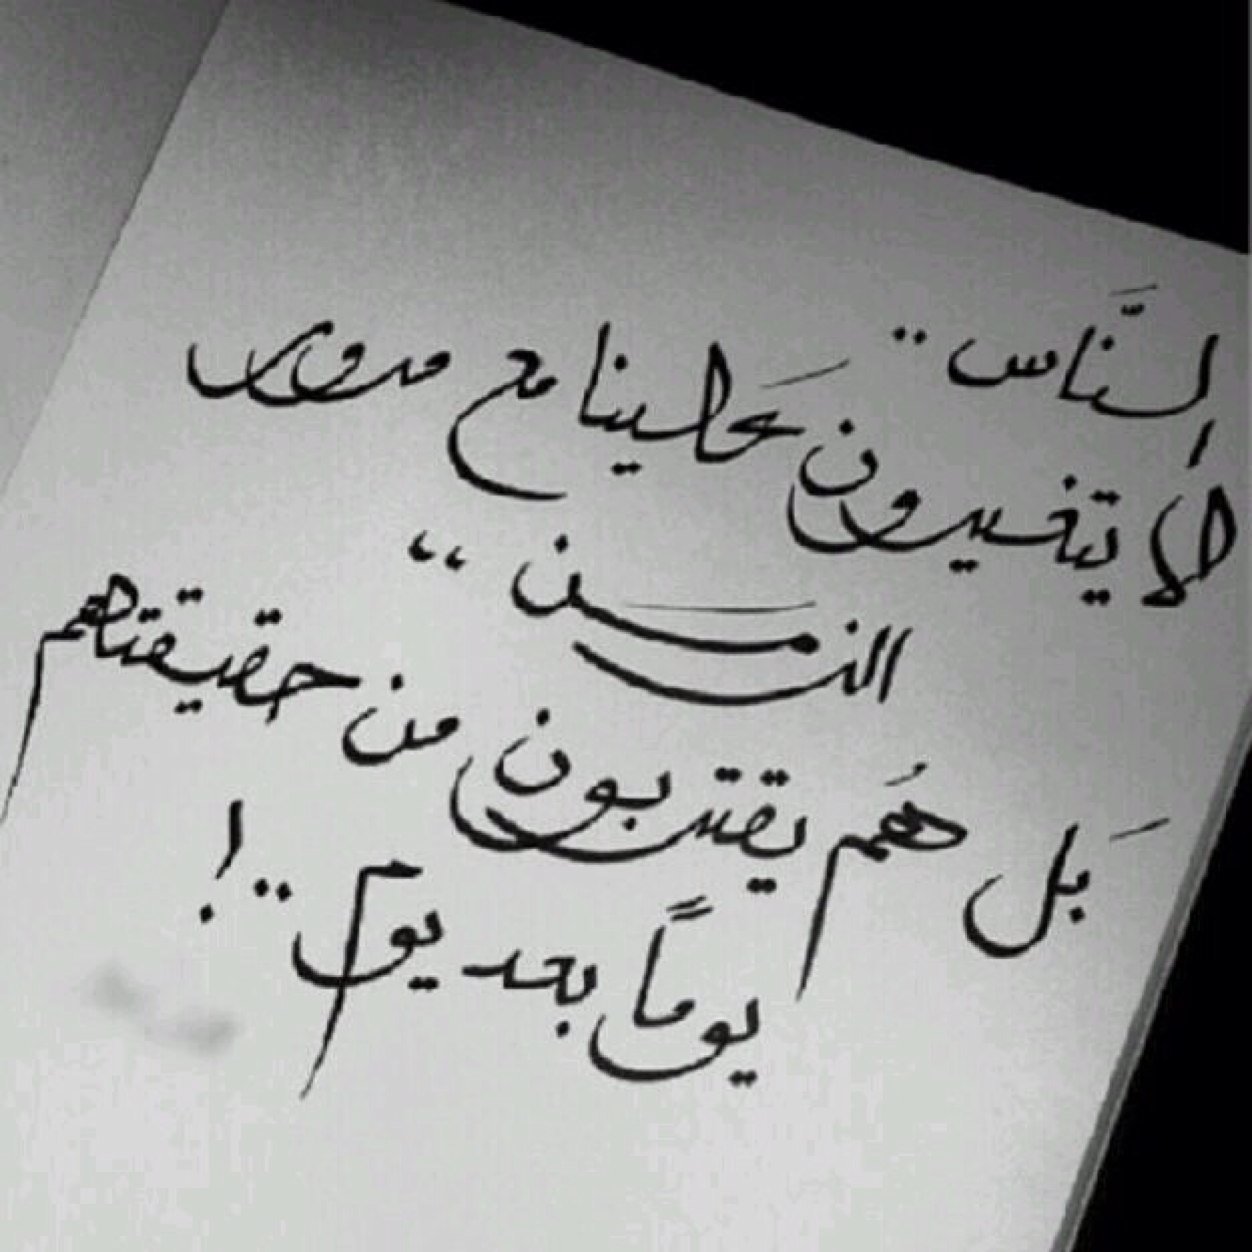 النَّاس ..
لا يتغيرون عَلينا مع مرور
الزمن ،،
بَل هُم يقتربون من حقيقتهم
يوماً بعد يوم .. !